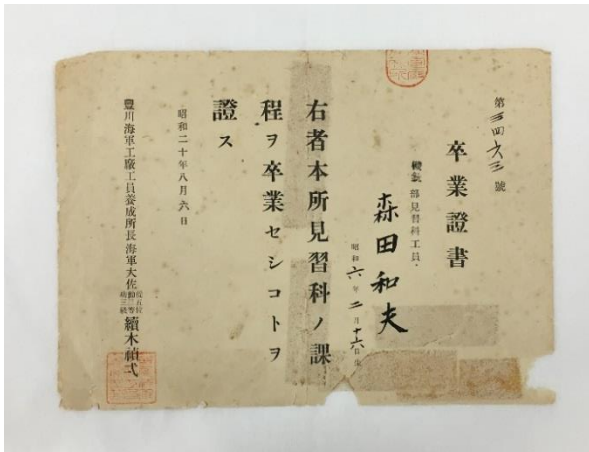 第三四六三號
卒業證書
機銃部見習科工員
森田和夫
昭和六年二月十六日生
右者本所見習科ノ課
程ヲ卒業セシコトヲ
證ス
昭和二十年八月六日
豐川海軍工廠工員養成所長海軍大佐
從五位
勳三等
續木禎弌